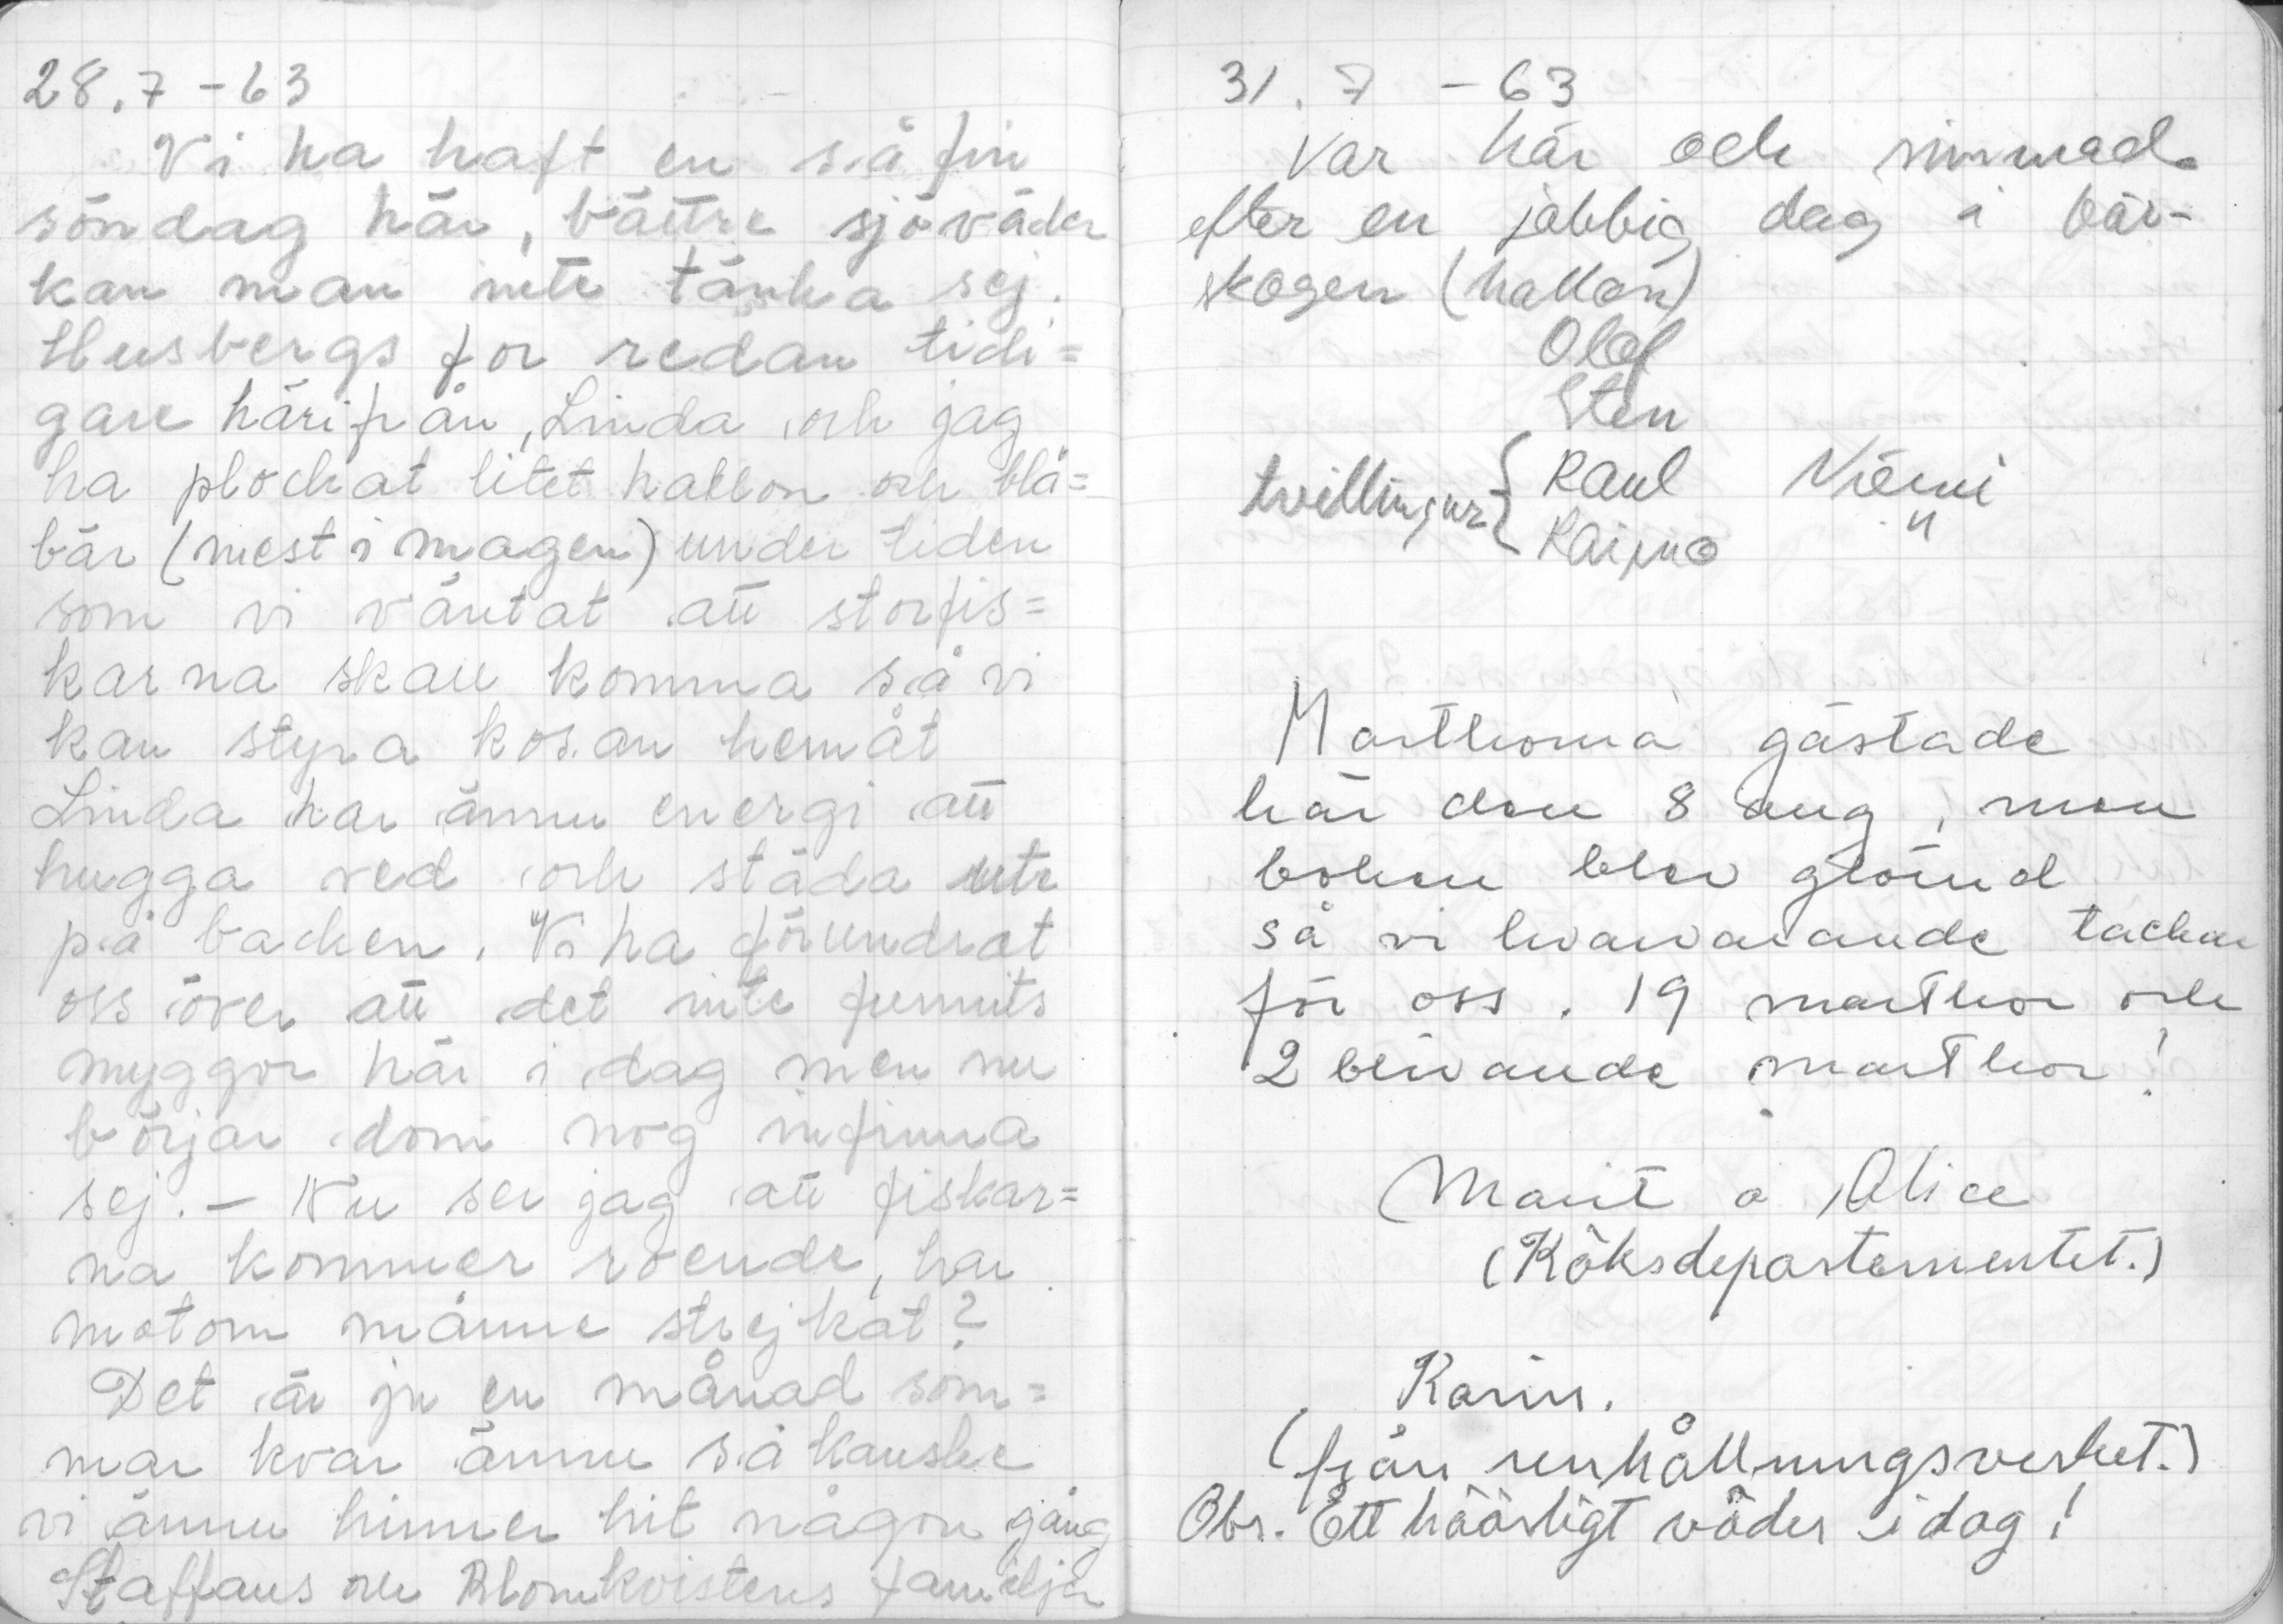 28.7-63
Vi ha haft en så fin
söndag här, bättre sjöväder
kan man inte tänka sej.
Husbergs for redan tidi=
gare härifrån, Linda och jag
ha plockat litet hallon och blå=
bär (mest i magen) under tiden
som vi väntat att storfis=
karna skall komma så vi
kan styra kosan hemåt
Linda har ännu energi att
hugga ved och städa ute
på backen. Vi ha förundrat
oss över att det inte funnits
myggor här i dag men nu
börjar dom nog infinna
sej. - Nu ser jag att fiskar=
na kommer roende, har
motorn månne strejkat?
Det är ju en månad som=
mar kvar ännu så kanske
vi ännu hinner hit någon gång
Staffans och Blomkvistens familjer
31.7-63
Var här och simmad
efter en jobbig dag i bär-
skogen (hallon)
Olof
Sten
tvillingar { Raul Niemi
Raimo "
Marthorna gästade
här den 8 aug, men
boken blev glömd
så vi kvarvarande tackar
för oss. 19 marthor och
2 blivande marthor!
Marit o Alice
(Köksdepartementet.)
Karin.
(från renhållningsverket.)
Obs. Ett häärligt väder idag!